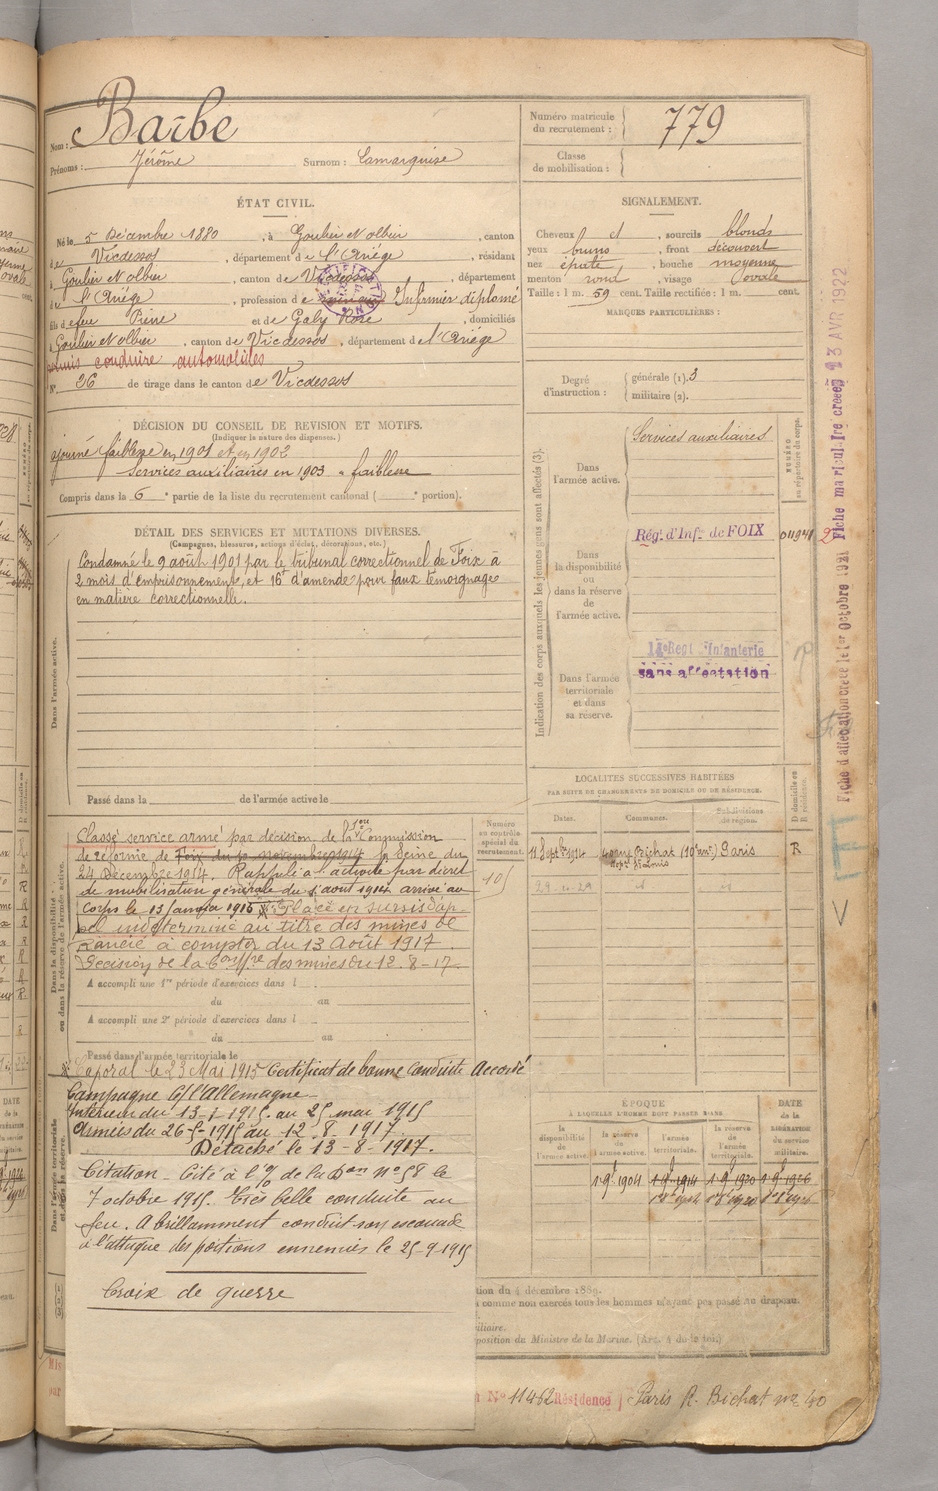 Nom : Barbe
Prénoms : Jérôme Surnom : Camarguise
Numéro matricule du recrutement : 779
Classe de mobilisation :
ÉTAT CIVIL.
Né le 5 Décembre 1880, à Goulier et Olbier, canton
de Vicdessos, département de l'Ariège, résidant
à Goulier et Olbier, canton de Vicdessos, département
de l'Ariège, profession de Infirmier diplomé
fils de feu Pierre et de Galy Rose, domiciliés
à Goulier et Olbier, canton de Vicdessos, département de l'Ariège
permis conduire automobiles
N° 36 de tirage dans le canton de Vicdessos
SIGNALEMENT.
Cheveux et, sourcils blonds
yeux bruns, front découvert
nez épaté, bouche moyenne
menton rond, visage ovale
Taille : 1 m. 59 cent. Taille rectifiée : 1 m. cent.
MARQUES PARTICULIÈRES :
Degré d'instruction : générale (1). 3
militaire (2).
DÉCISION DU CONSEIL DE REVISION ET MOTIFS.
(Indiquer la nature des dispenses.)
ajourné faiblesse en 1901 et en 1902
services auxiliaires en 1903 faiblesse
Compris dans la 6e partie de la liste du recrutement cantonal ( e portion).
DÉTAIL DES SERVICES ET MUTATIONS DIVERSES.
(Campagnes, blessures, actions d'éclat, décorations, etc.)
Condamné le 9 août 1901 par le tribunal correctionnel de Foix à
2 mois d'emprisonnement, et 16f d'amende pour faux témoignage
en matière correctionnelle.
Dans l'armée active.
Passé dans la de l'armée active le
Indication des corps auxquels les jeunes gens sont affectés (3).
Dans l'armée active.
Services auxiliaires
NUMÉRO au répertoire du corps.
Dans la disponibilité ou dans la réserve de l'armée active.
Rég. d'Inf. de FOIX
Dans l'armée territoriale et dans sa réserve.
Regt Infanterie
sans affectation
Fiche d'affectation créée le 1er Octobre 1921 Fiche matriculaire créée 13 AVR 1922
LOCALITÉS SUCCESSIVES HABITÉES
PAR SUITE DE CHANGEMENTS DE DOMICILE OU DE RÉSIDENCE.
Dates. Communes. Subdivisions de région. D domicile ou R résidence.
11 Sept bre 1914 40 rue Bichat (10e arr.) Paris R
Numéro au contrôle spécial du recrutement.
105
Dans la disponibilité ou dans la réserve de l'armée active.
Classé service armé par décision de la 1ère Commission
de réforme de Foix du 10 novembre 1914 la Seine du
24 Décembre 1914. Rappelé à l'activité par décret
de mobilisation générale du 1 août 1914 arrivé au
corps le 13 janvier 1915 Placé en sursis d'ap
pel indéterminé au titre des mines de
Rancié à compter du 13 Août 1917.
Décision de la des mines du 13.8-17
A accompli une 1re période d'exercices dans l
du au
A accompli une 2e période d'exercices dans l
du au
Passé dans l'armée territoriale le
Caporal le 23 Mai 1915 Certificat de bonne conduite Accordé
Campagne C/ l'Allemagne
Intérieur du 13-1-1915. au 25 mai 1915
Armées du 26-5-1915 au 12.8.1917
Détaché le 13-8-1917.
Citation – Cité à l'o/ de la Don n° 58 le
7 octobre 1915. Très belle conduite au
feu. A brillamment conduit son escouade
à l'attaque des positions ennemies le 25-9-1915
Croix de guerre
ÉPOQUE
À LAQUELLE L'HOMME DOIT PASSER DANS
la disponibilité de l'armée active. la réserve de l'armée active. l'armée territoriale. la réserve de l'armée territoriale.
DATE de la LIBÉRATION du service militaire.
1-9-1904 1-9-1914 1-9-1920 1-9-1926
tion du 4 décembre 1889.
comme non exercés tous les hommes n'ayant pas passé au drapeau.
iliaire.
position du Ministre de la Marine. (Art. 4 de la loi.)
N° 11462 Résidence Paris R. Bichat n° 40